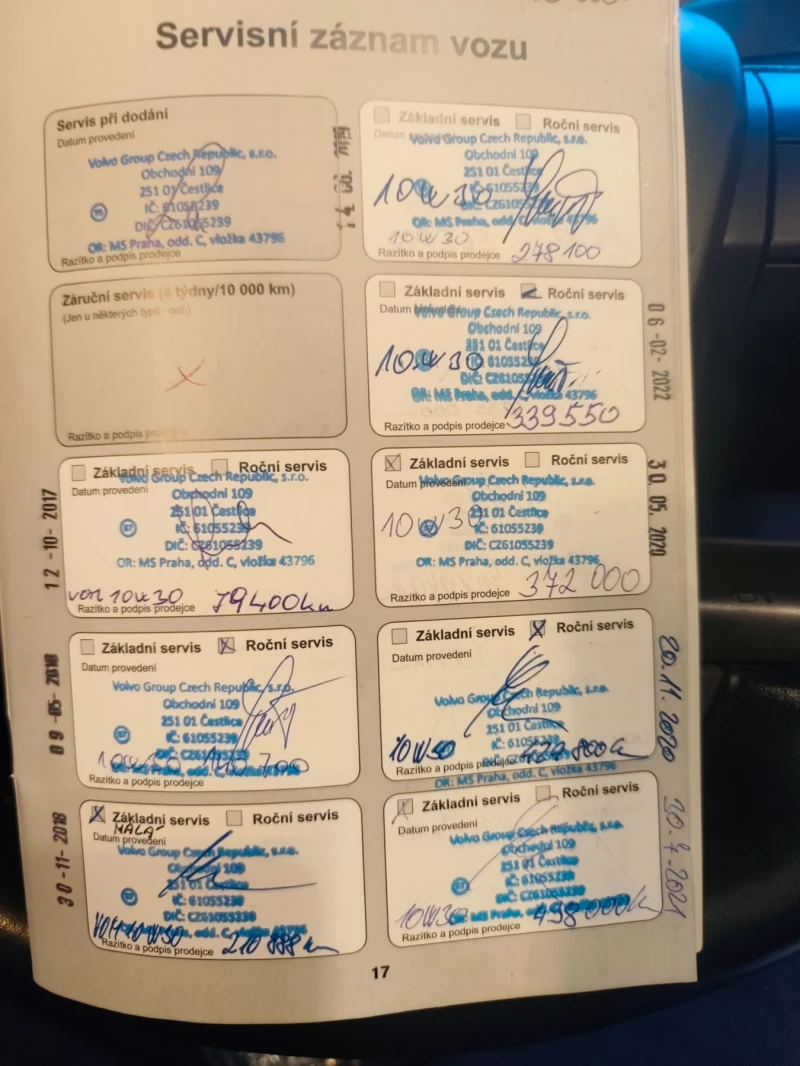 Servisní záznam vozu
Servis při dodání
Datum provedení
Volvo Group Czech Republic, s.r.o.
Obchodní 109
251 01 Čestlice
IČ: 61055239
DIČ: CZ61055239
OR: MS Praha, odd. C, vložka 43796
Razítko a podpis prodejce
Záruční servis (4 týdny/10 000 km)
(Jen u některých typů
Razítko a podpis
Základní servis Roční servis
Datum provedení
Volvo Group Czech Republic, s.r.o.
Obchodní 109
251 01 Čestlice
IČ: 61055239
DIČ: CZ61055239
OR: MS Praha, odd. C, vložka 43796
10W30 79400km
Razítko a podpis prodejce
12-10-2017
Základní servis Roční servis
Datum provedení
Volvo Group Czech Republic, s.r.o.
Obchodní 109
251 01 Čestlice
IČ: 61055239
DIČ: CZ61055239
Praha, odd. C, vložka 43796
Razítko a podpis prodejce
09-05-2018
Základní servis Roční servis
MALÁ
Datum provedení
Volvo Group Czech Republic, s.r.o.
Obchodní 109
251 01 Čestlice
IČ: 61055239
DIČ: CZ61055239
10W30 210 888km
Razítko a podpis prodejce
30-11-2018
Základní servis Roční servis
Datum
Volvo Group Czech Republic, s.r.o.
Obchodní 109
251 01 Čestlice
10W30 IČ: 61055239
OR: MS Praha, odd. C, vložka 43796
10W30 278100
Razítko a podpis prodejce
Základní servis Roční servis
Datum
Volvo Group Czech Republic, s.r.o.
Obchodní 109
251 01 Čestlice
10W30 IČ: 61055239
OR: MS Praha, odd. C, vložka 43796
Razítko a podpis prodejce 339550
06-02-2022
Základní servis Roční servis
Datum provedení
Volvo Group Czech Republic, s.r.o.
Obchodní 109
251 01 Čestlice
10W30 IČ: 61055239
DIČ: CZ61055239
OR: MS Praha, odd. C, vložka 43796
Razítko a podpis prodejce 372 000
30. 05. 2020
Základní servis Roční servis
Datum provedení
Volvo Group Czech Republic, s.r.o.
Obchodní 109
251 01 Čestlice
10W30 IČ: 61055239
Razítko a podpis prodejce
OR: MS Praha, odd. C, vložka 43796
20.11.2020
Základní servis Roční servis
Datum provedení
Volvo Group Czech Republic, s.r.o.
Obchodní 109
251 01 Čestlice
IČ: 61055239
DIČ: CZ61055239
10W30 498000km
Razítko a podpis prodejce
30.7.2021
17